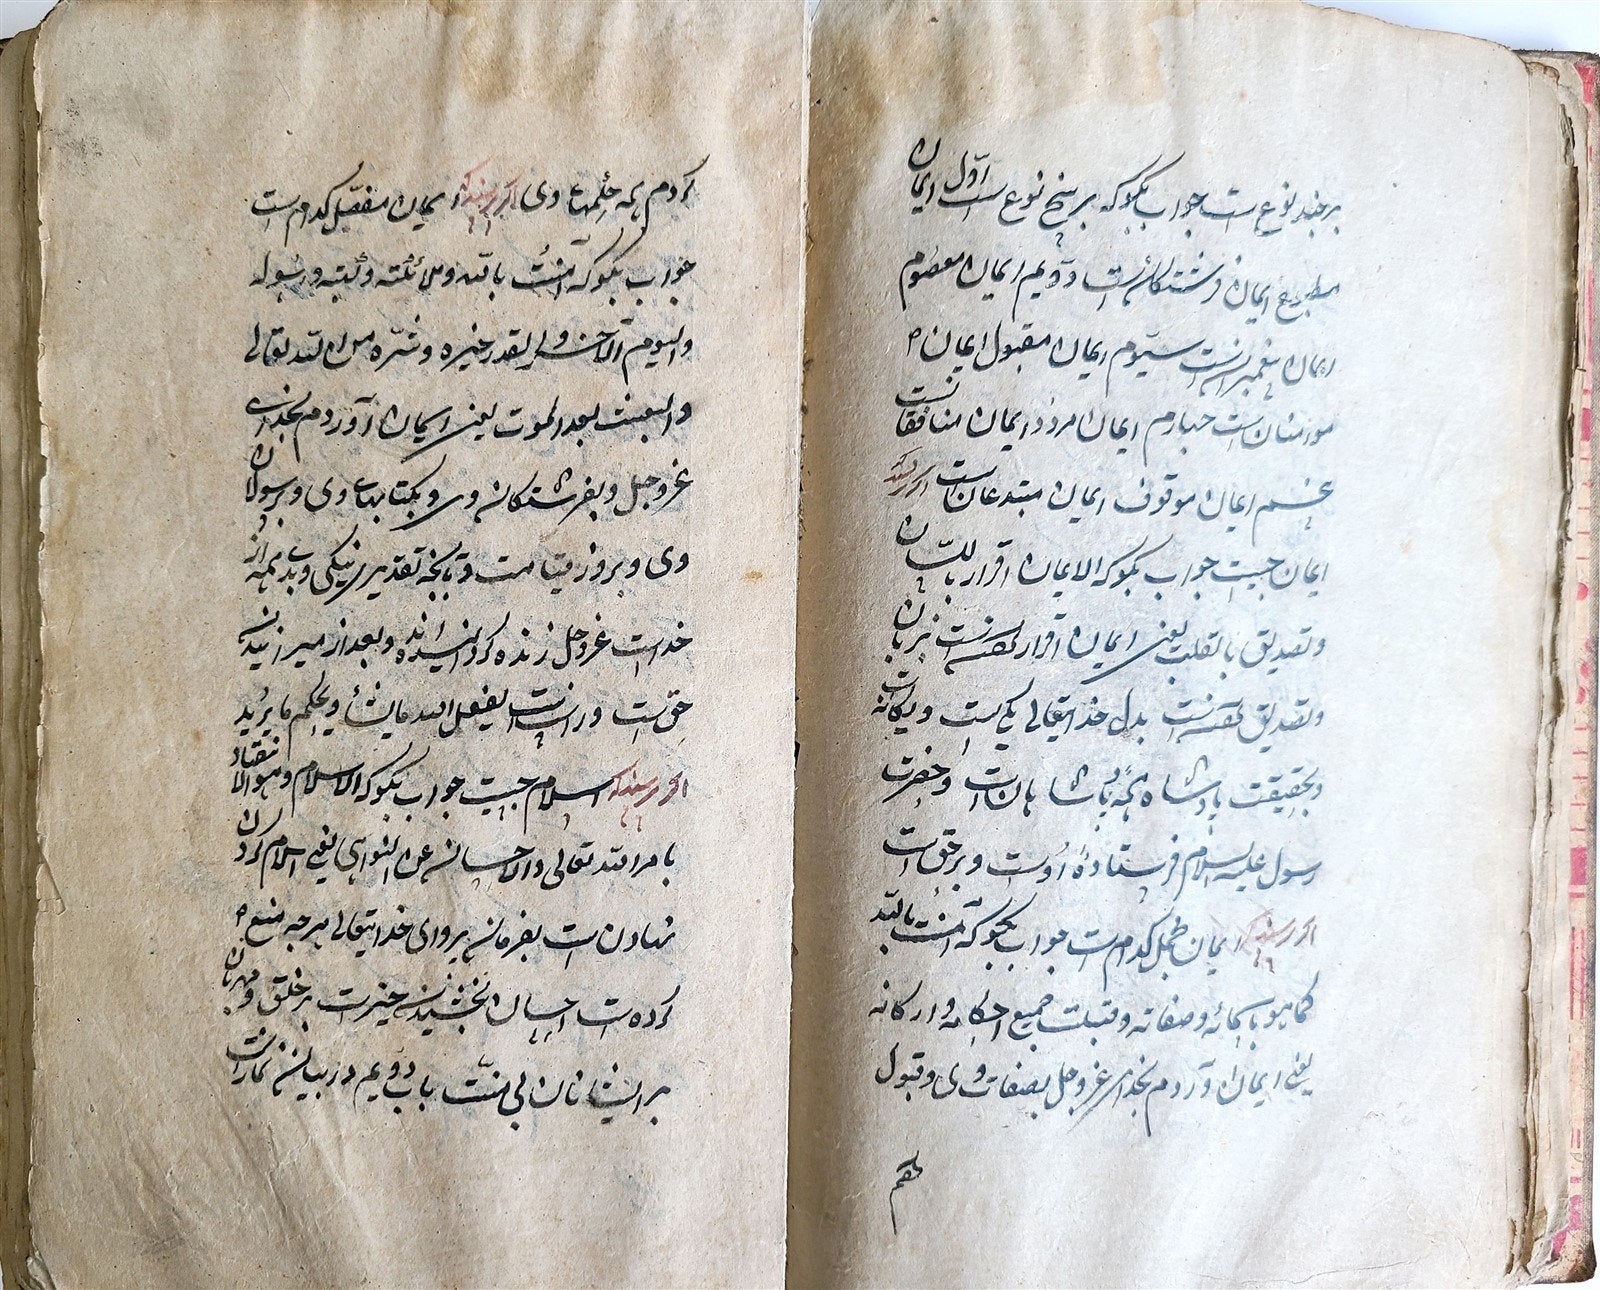 بر چند نوع است جواب بگو که بر پنج نوع است اول ایمان
مطبوع ایمان فرشتگانست دویم ایمان معصوم
ایمان پیغمبرانست سیّوم ایمان مقبول ایمان
مؤمنان است چهارم ایمان مردود ایمان منافقانست
پنجم ایمان موقوف ایمان مبتدعان است اگر پرسند که
ایمان چیست جواب بگو که الایمان اقرار باللسان
و تصدیق بالقلب یعنی ایمان اقرار گفتنست بزبان
و تصدیق گفتنست بدل خدایتعالی یکیست و یگانه است
و بحقیقت پادشاه همه پادشاهان است و حضرت
رسول علیه السلام فرستادهٔ اوست و برحق است
اگر پرسند که ایمان مجمل کدام است جواب بگو که آمنت بالله
کما هو باسمائه و صفاته و قبلت جمیع احکامه و ارکانه
یعنی ایمان آوردم بخدای عزوجل بصفات وی و قبول
کردم همه حکمهاء وی اگر پرسند که ایمان مفصّل کدام است
جواب بگو که آمنتُ بالله و ملائکته و کتبه و رسوله
والیوم الآخر والقدر خیره و شرّه من الله تعالی
والبعث بعد الموت یعنی ایمان آوردم بخدای
عزوجل و بفرشتگان وی و بکتابهاء وی و برسولان
وی و بروز قیامت و بآنچه تقدیر نیکی و بدی همه از
خداست عزوجل زنده گردانیده اند و بعد از میرانیدن
حق است و راست است یفعل الله ما یشأ و یحکم ما یرید
اگر پرسند که اسلام چیست جواب بگو که الاسلام و هو الانقیاد
بامر الله تعالی والاحسان عن النواهی یعنی اسلام کردن
نهادن است بفرمان برداری خدایتعالی هرچه منع
کرده است احسان بخشیدن خیر است بر خلق و مهربان
بر ایشانان بی منّت باب دویم در بیان نماز است